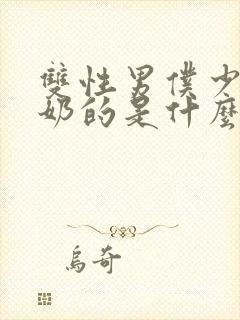 雙性男僕少
奶的是什麼
烏奇